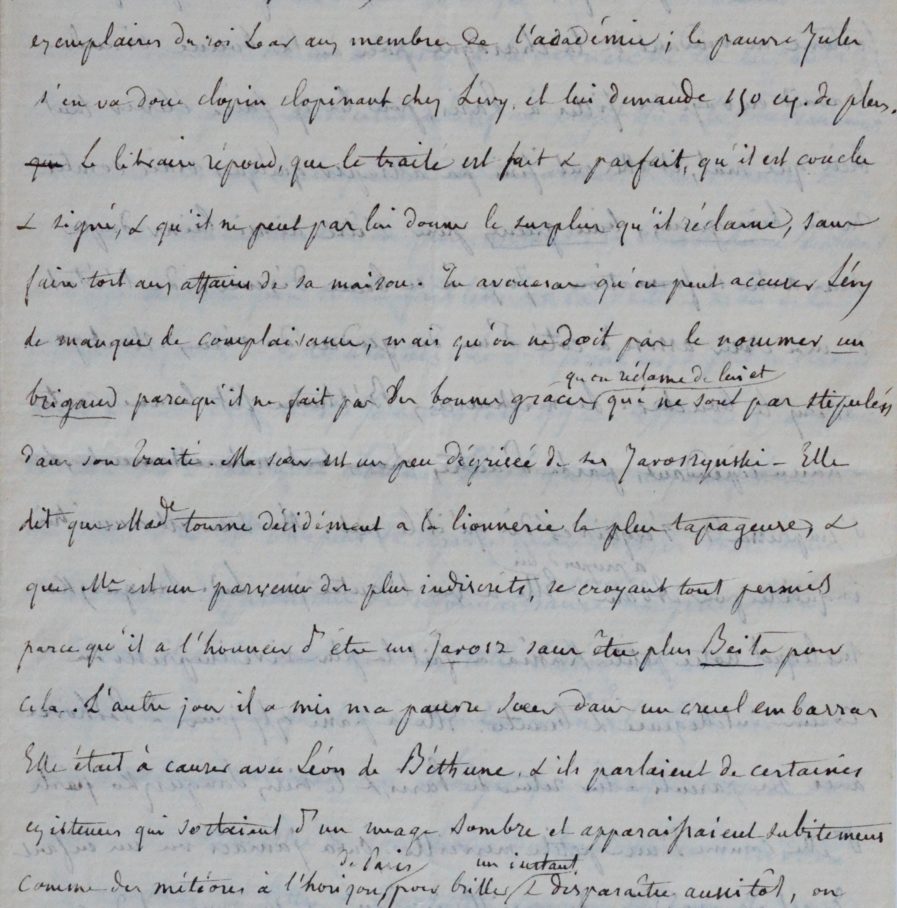 exemplaires du roi Lear aux membre de l'académie ; le pauvre Jules
s'en va donc clopin clopinant chez Lévy, et lui demande 150 ex. de plus.
Le libraire répond, que le traité est fait & parfait, qu'il est conclu
& signé, & qu'il ne peut pas lui donner le surplus qu'il réclame, sans
faire tort aux affaires de sa maison. Tu avoueras qu'on peut accuser Lévy
de manquer de complaisance, mais qu'on ne doit pas le nommer un
qu'on réclame de lui et
brigand parcequ'il ne fait pas des bonnes grâces, qui ne sont pas stipulées
dans son traité. Ma sœur est un peu dégrisée de ses Jaroszyński – Elle
dit que Made tourne décidément a la lionnerie la plus tapageuse, &
que Mr est un parvenu des plus indiscrets, se croyant tout permis
parce qu'il a l'honneur d'être un Jarosz sans être plus Beita pour
cela. L'autre jour il a mis ma pauvre sœur dans un cruel embarras
Elle était à causer avec Léon de Béthune, & ils parlaient de certaines
existences qui sortaient d'un nuage sombre et apparaissaient subitement
de Paris un instant
comme des météores à l'horizon, pour briller & disparaître aussitôt, on